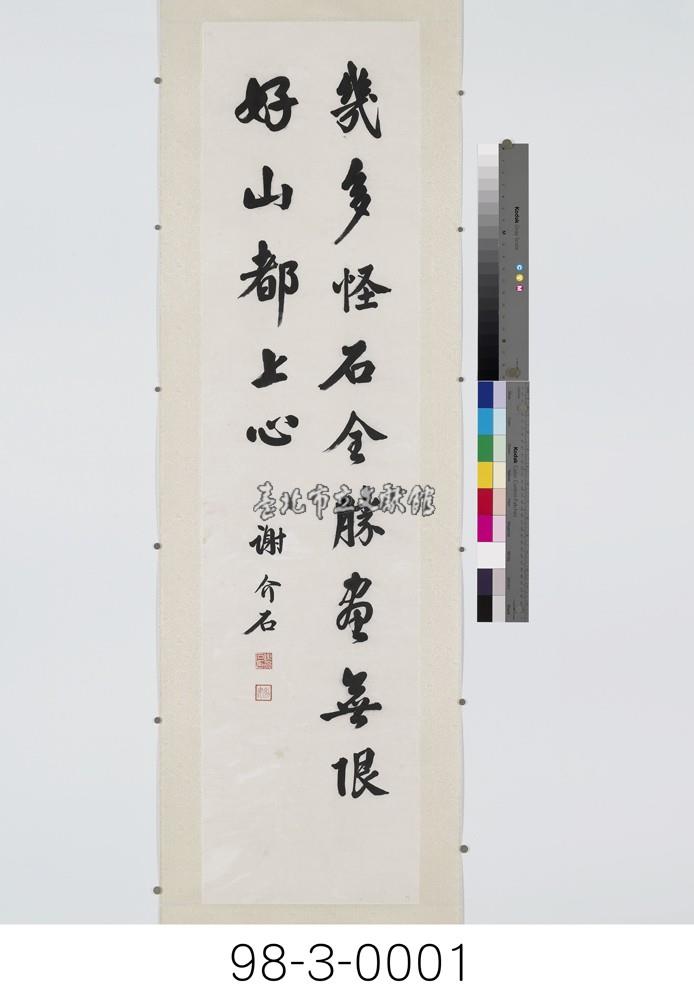 幾多怪石全勝畫無限
好山都上心
謝介石
臺北市立文獻館
Kodak Gray Scale
C Y M
98-3-0001